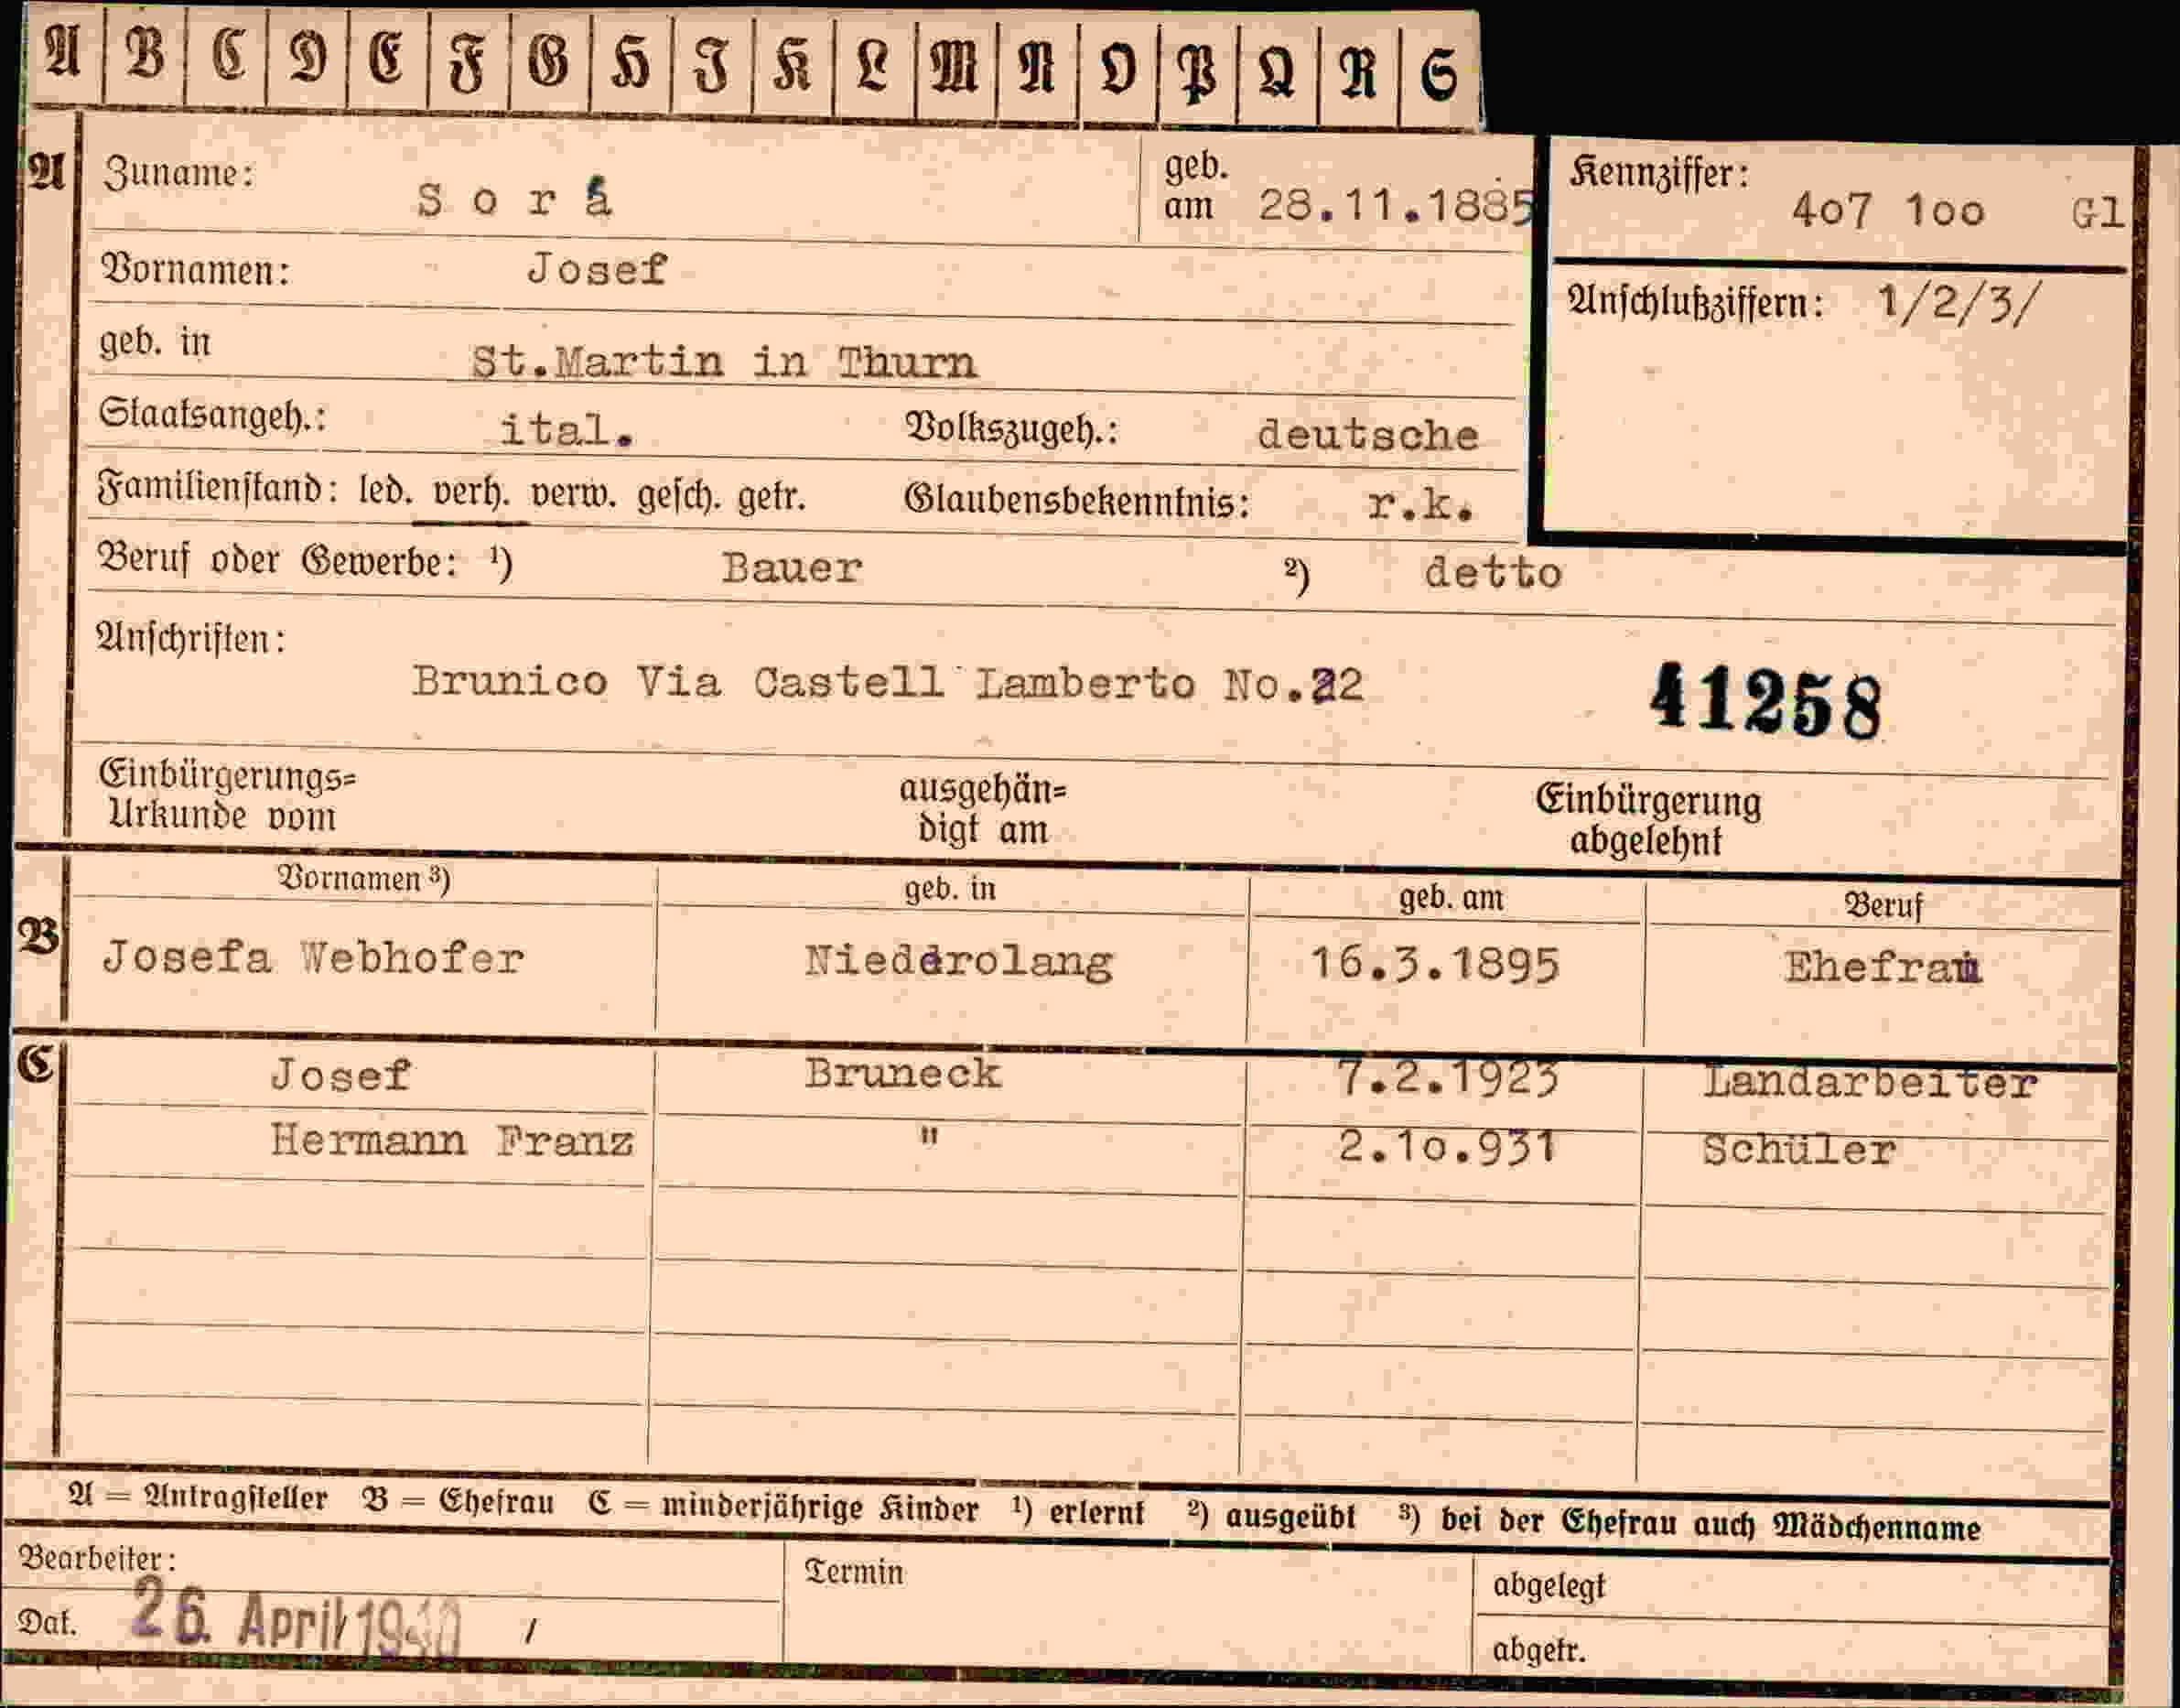 A B C D E F G H I K L M N O P Q R S
A Zuname: Sorá geb. am 28.11.1885 Kennziffer: 4o7 1oo Gl
Vornamen: Josef
Anschlußziffern: 1/2/3/
geb. in St.Martin in Thurn
Staatsangeh.: ital. Volkszugeh.: deutsche
Familienstand: led. verh. verw. gesch. getr. Glaubensbekenntnis: r.k.
Beruf oder Gewerbe: ¹) Bauer ²) detto
Anschriften:
Brunico Via Castell Lamberto No.22 41258
Einbürgerungs=
Urkunde vom
ausgehän=
digt am
Einbürgerung
abgelehnt
Vornamen ³) geb. in geb. am Beruf
B Josefa Webhofer Niederolang 16.3.1895 Ehefrau
C Josef Bruneck 7.2.1923 Landarbeiter
Hermann Franz " 2.1o.931 Schüler
A = Antragsteller B = Ehefrau C = minderjährige Kinder ¹) erlernt ²) ausgeübt ³) bei der Ehefrau auch Mädchenname
Bearbeiter: Termin abgelegt
Dat. 26. April 1940 / abgetr.